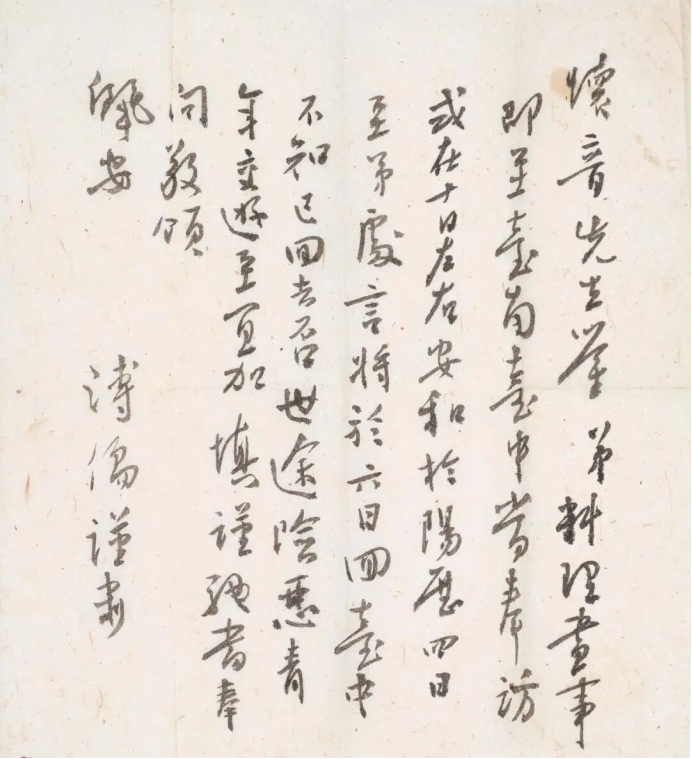 懷音先生鑒弟料理畫事
即至臺南臺中當奉訪
或在十日左右安和於陽曆四日
至弟處言將於六日回臺中
不知已回去否世途險惡青
年交遊至宜加慎謹馳書奉
問敬頌
安
溥儒謹肅